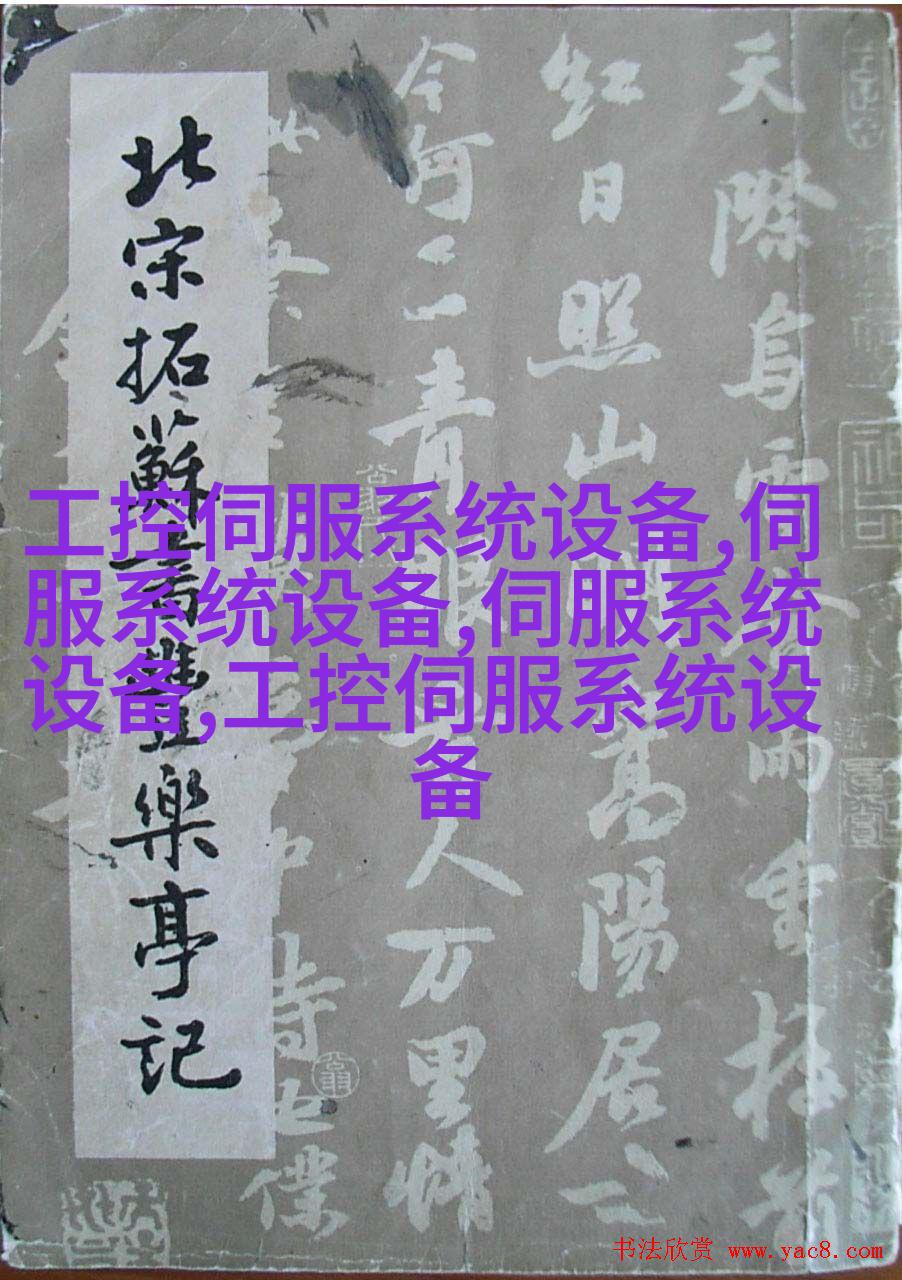 工控伺服系统设备,伺
服系统设备,伺服系统
设备,工控伺服系统设
备
北宋拓蘇書豐樂亭記
天際烏雲含雨重樓前
紅日照山明嵩陽居士
今何在青眼看人万里情
此蔡夢中詩也僕
书法欣赏 www.yac8.com